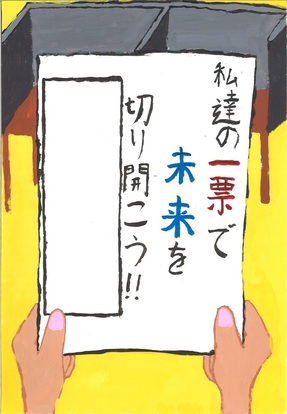 私達の一票で
未来を
切り開こう!!